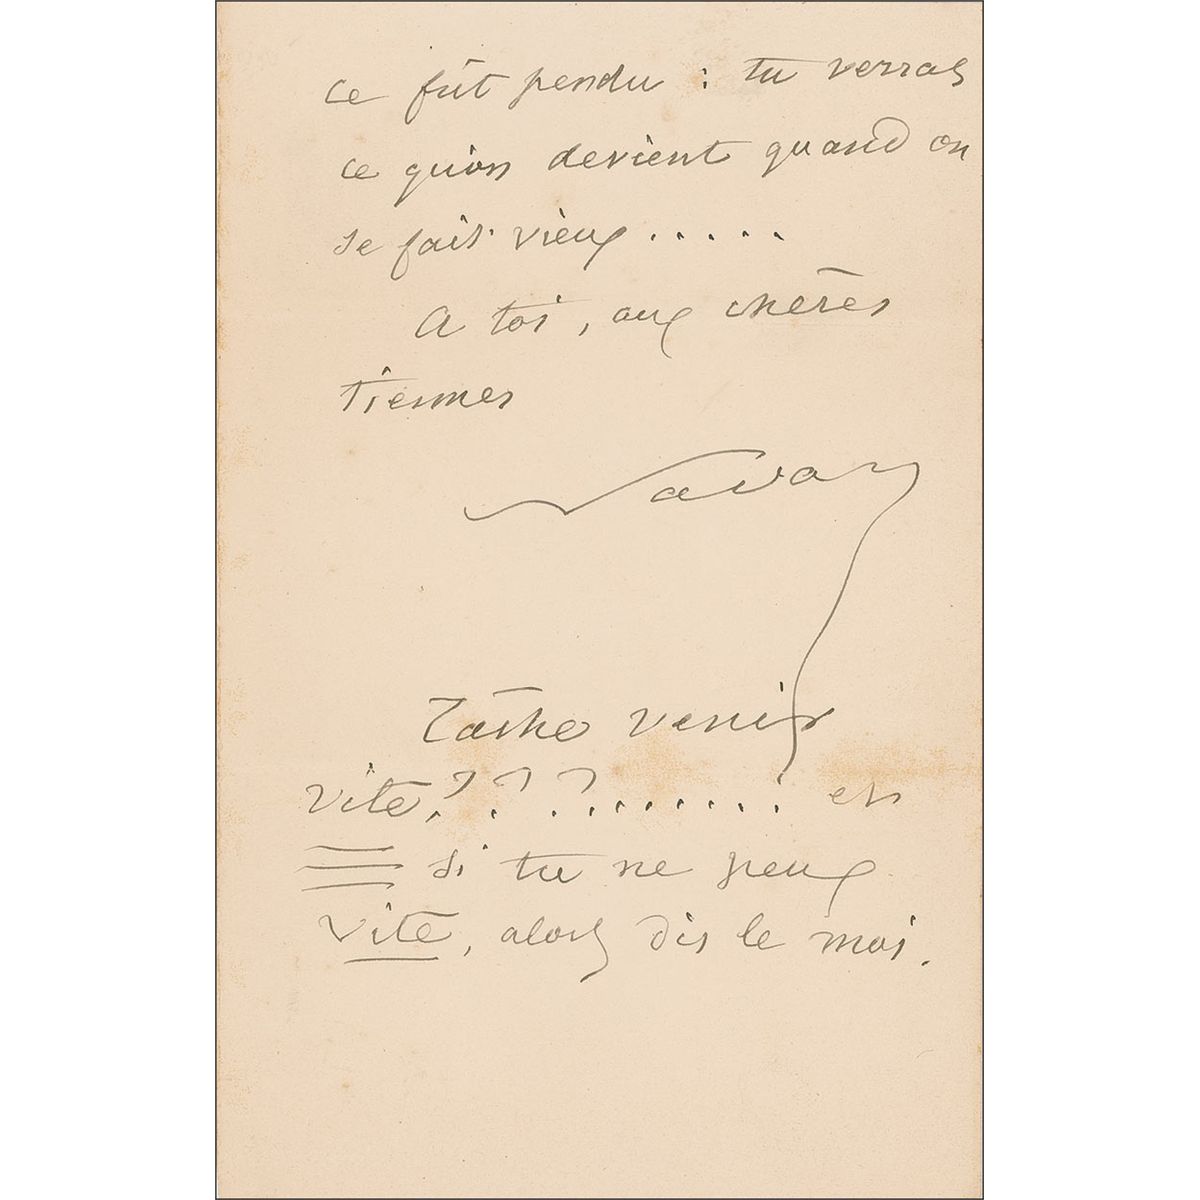 ce fût pendu : tu verras
ce qu'on devient quand on
se fait vieux . . . . .
A toi, aux chères
tiennes
Nadar
Tâche venir
vite, ? ? ? . . . . . . . . et
si tu ne peux
vite, alors dis le moi.